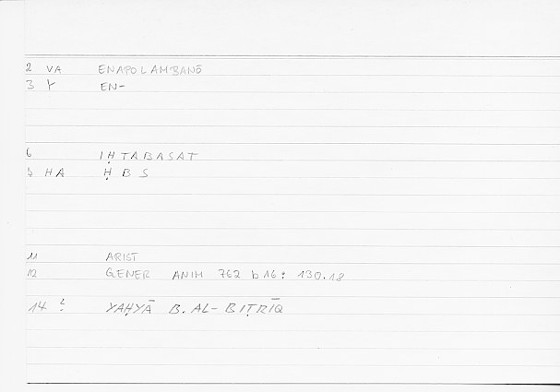 2 VA ENAPOLAMBANŌ
3 Y EN-
6 IḤTABASAT
7 HA ḤBS
11 ARIST
12 GENER ANIM 762 b16: 130.18
14 ? YAḤYĀ B. AL-BIṬRĪQ